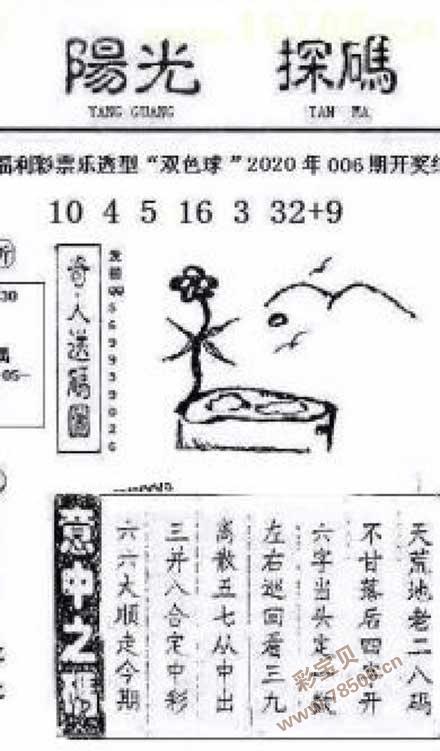 陽光 探碼
YANG GUANG TAN MA
福利彩票乐透型“双色球”2020年006期开奖
10 4 5 16 3 32+9
奇人送码图
天荒地老二八码
不甘落后四字开
六字当头定
左右巡回看三九
离散五七从中出
三并八合定中彩
六六大顺走今期
意中之
彩宝贝
www.78500.cn